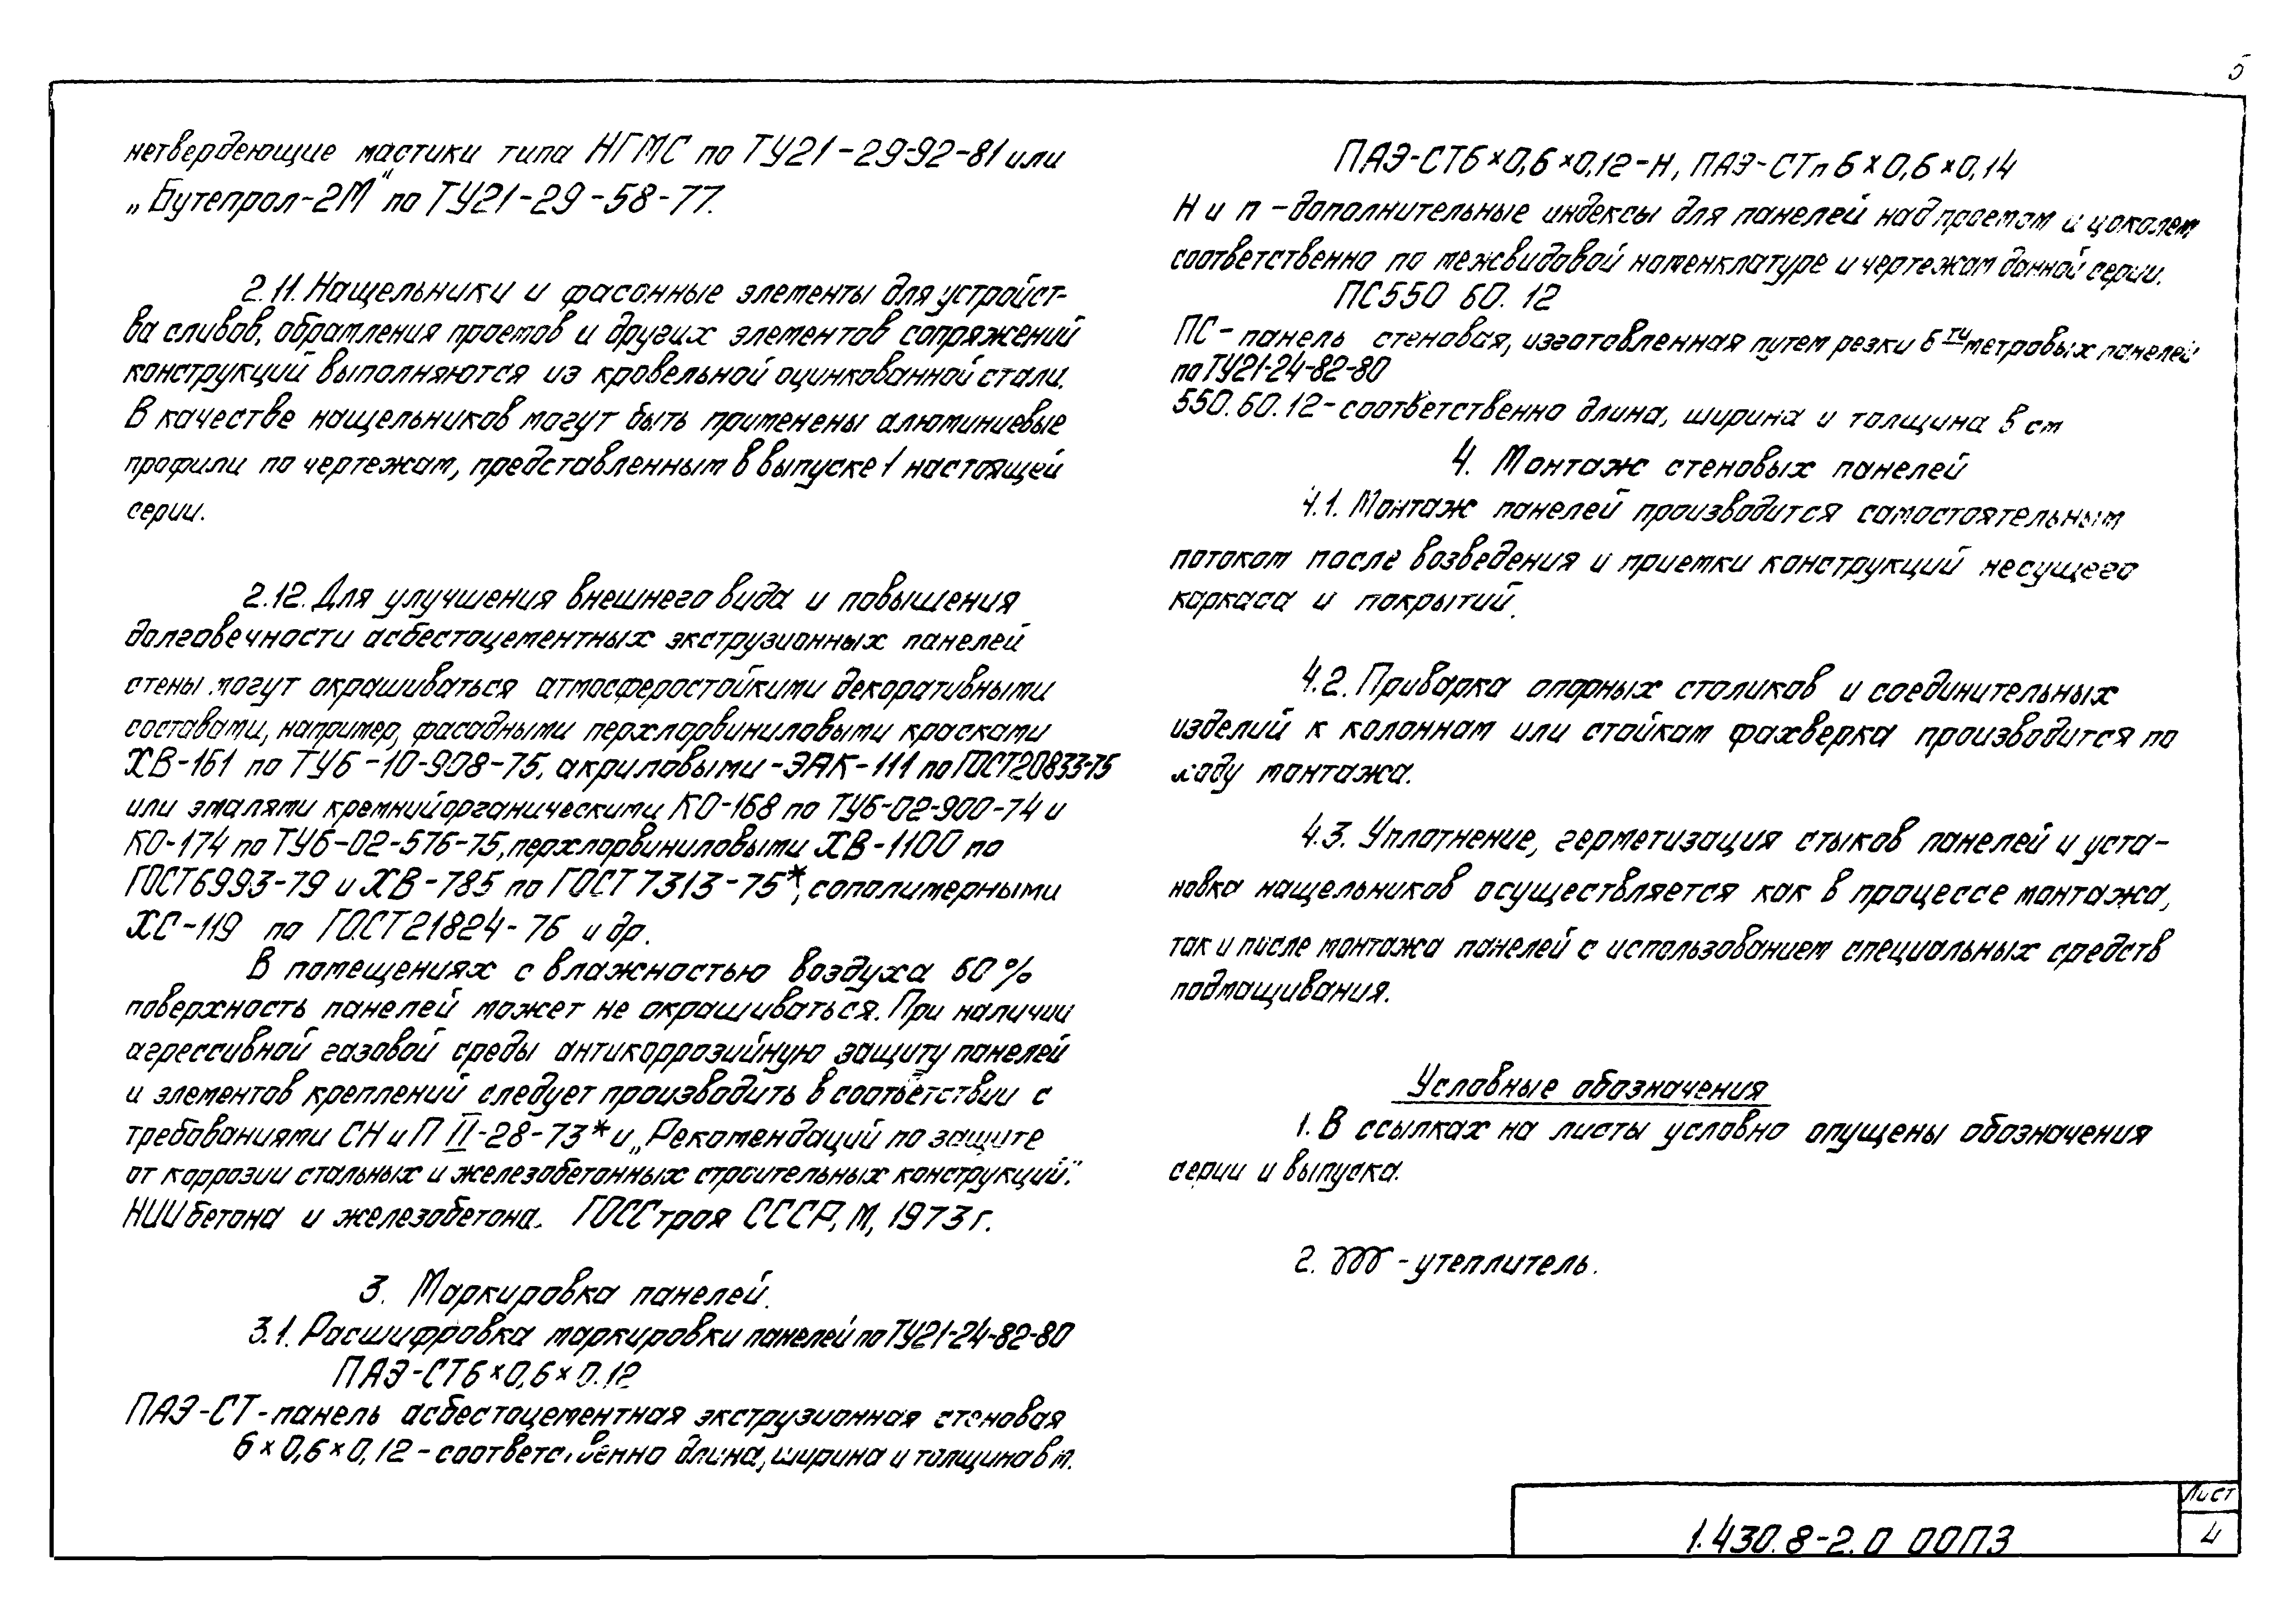 5
нетвердеющие мастики типа НГМС по ТУ21-29-92-81 или
„Бутепрол-2М" по ТУ21-29-58-77.
2.11. Нащельники и фасонные элементы для устройст-
ва сливов, обрамления проемов и других элементов сопряжений
конструкций выполняются из кровельной оцинкованной стали.
В качестве нащельников могут быть применены алюминиевые
профили по чертежам, представленным в выпуске 1 настоящей
серии.
2.12. Для улучшения внешнего вида и повышения
долговечности асбестоцементных экструзионных панелей
стены могут окрашиваться атмосферостойкими декоративными
составами, например, фасадными перхлорвиниловыми красками
ХВ-161 по ТУ6-10-908-75, акриловыми-ЭАК-111 по ГОСТ20833-75
или эмалями кремнийорганическими КО-168 по ТУ6-02-900-74 и
КО-174 по ТУ6-02-576-75, перхлорвиниловыми ХВ-1100 по
ГОСТ6993-79 и ХВ-785 по ГОСТ 7313-75*, сополимерными
ХС-119 по ГОСТ21824-76 и др.
В помещениях с влажностью воздуха 60%
поверхность панелей может не окрашиваться. При наличии
агрессивной газовой среды антикоррозийную защиту панелей
и элементов креплений следует производить в соответствии с
требованиями СНиП II-28-73* и „Рекомендаций по защите
от коррозии стальных и железобетонных строительных конструкций".
НИИ бетона и железобетона. ГОССтроя СССР, М, 1973 г.
3. Маркировка панелей.
3.1. Расшифровка маркировки панелей по ТУ21-24-82-80
ПАЭ-СТ6×0,6×0.12
ПАЭ-СТ-панель асбестоцементная экструзионная стеновая
6×0,6×0,12-соответственно длина, ширина и толщина в м.
ПАЭ-СТ6×0,6×0,12-Н, ПАЭ-СТп 6×0,6×0,14
Н и п-дополнительные индексы для панелей над проемом и цоколем
соответственно по межвидовой номенклатуре и чертежам данной серии.
ПС550 60. 12
ПС-панель стеновая, изготовленная путем резки 6ти метровых панелей
по ТУ21-24-82-80
550.60.12-соответственно длина, ширина и толщина в см
4. Монтаж стеновых панелей
4.1. Монтаж панелей производится самостоятельным
потоком после возведения и приемки конструкций несущего
каркаса и покрытий.
4.2. Приварка опорных столиков и соединительных
изделий к колоннам или стойкам фахверка производится по
ходу монтажа.
4.3. Уплотнение, герметизация стыков панелей и уста-
новка нащельников осуществляется как в процессе монтажа,
так и после монтажа панелей с использованием специальных средств
подмащивания.
Условные обозначения
1. В ссылках на листы условно опущены обозначения
серии и выпуска.
2. - утеплитель.
Лист
1.430.8-2.0 00ПЗ
4